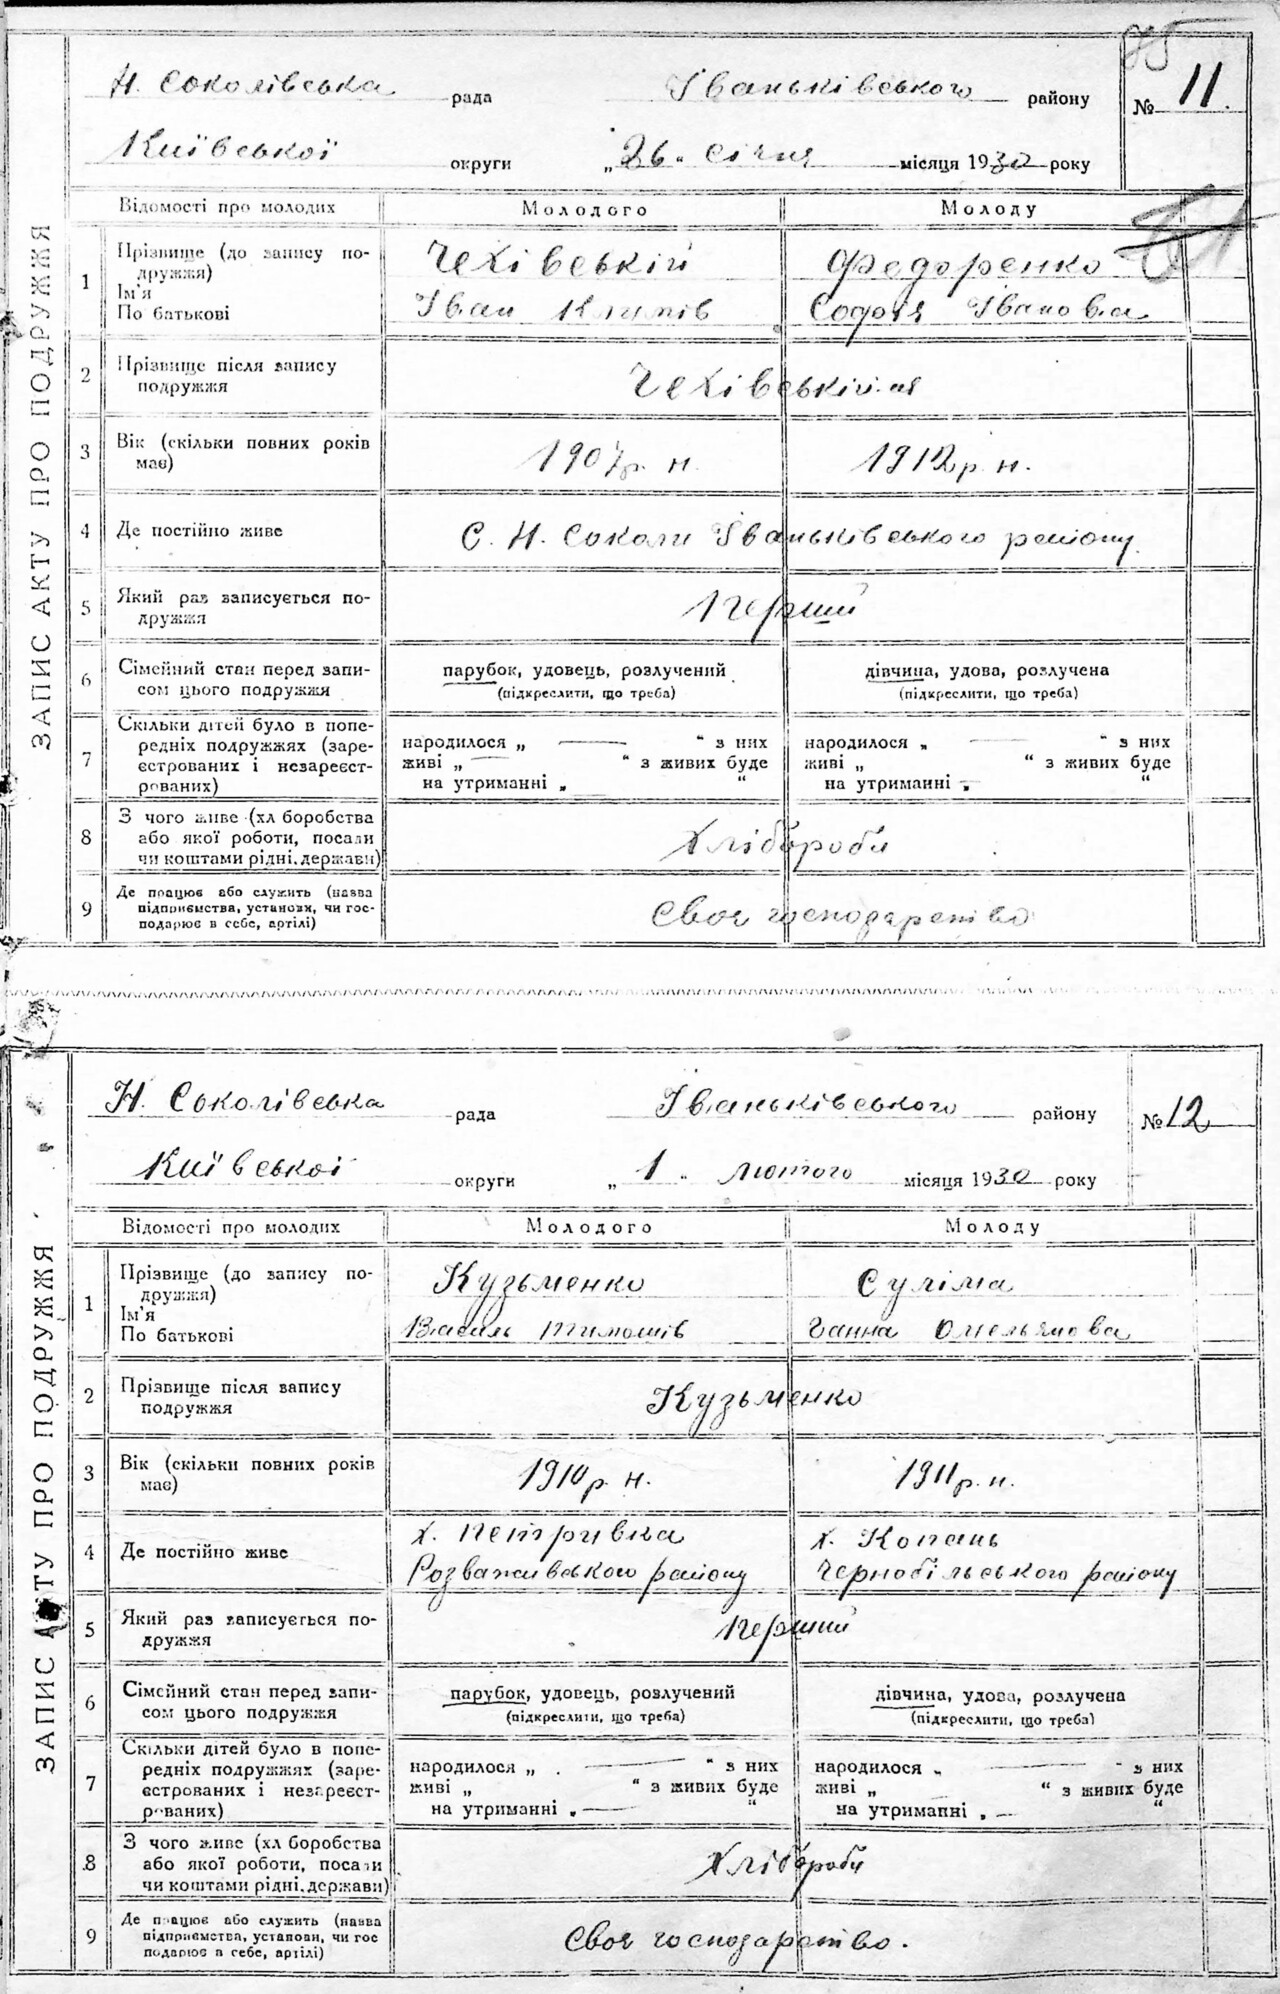 75
Н. Соколівська рада Іваньківського району № 11.
Київської округи „26“ січня місяця 1930 року
ЗАПИС АКТУ ПРО ПОДРУЖЖЯ
Відомості про молодих Молодого Молоду
1 Прізвище (до запису подружжя) Чехівській Федоренко
Ім'я
По батькові Іван Климів Софія Іванова
2 Прізвище після запису
подружжя Чехівській.ая
3 Вік (скільки повних років
має) 1907 р. н. 1912 р. н.
4 Де постійно живе С. Н. Соколи Іваньківського району
5 Який раз записується по-
дружжя Перший
6 Сімейний стан перед запи- парубок, удовець, розлучений дівчина, удова, розлучена
сом цього подружжя (підкреслити, що треба) (підкреслити, що треба)
7 Скільки дітей було в попе-
редніх подружжях (заре- народилося „ — “ з них народилося „ — “ з них
єстрованих і незареєст- живі „ — “ з живих буде живі „ “ з живих буде
рованих) на утриманні „ “ на утриманні „ — “
8 З чого живе (хл боробства
або якої роботи, посади Хлібороби
чи коштами рідні, держави)
9 Де працює або служить (назва
підприємства, установи, чи гос- Своє господарство
подарює в себе, артілі)
Н. Соколівська рада Іваньківського району № 12
Київської округи „1“ лютого місяця 1930 року
ЗАПИС АКТУ ПРО ПОДРУЖЖЯ
Відомості про молодих Молодого Молоду
1 Прізвище (до запису по- Кузьменко Суліма
дружжя)
Ім'я
По батькові Василь Тимошів Ганна Омельянова
2 Прізвище після запису
подружжя Кузьменко
3 Вік (скільки повних років
має) 1910 р. н. 1911 р. н.
4 х. Петривка х. Копань
Де постійно живе
Розважівського району Чернобільського району
5 Який раз записується по-
дружжя Перший
6 Сімейний стан перед запи- парубок, удовець, розлучений дівчина, удова, розлучена
сом цього подружжя (підкреслити, що треба) (підкреслити, що треба)
7 Скільки дітей було в попе-
редніх подружжях (заре- народилося „ — “ з них народилося „ — “ з них
єстрованих і незареєст- живі „ “ з живих буде живі „ “ з живих буде
рованих) на утриманні „ — “ на утриманні „ — “
8 З чого живе (хл боробства
або якої роботи, посади Хлібороби
чи коштами рідні, держави)
9 Де працює або служить (назва
підприємства, установи, чи гос Своє господарство.
подарює в себе, артілі)